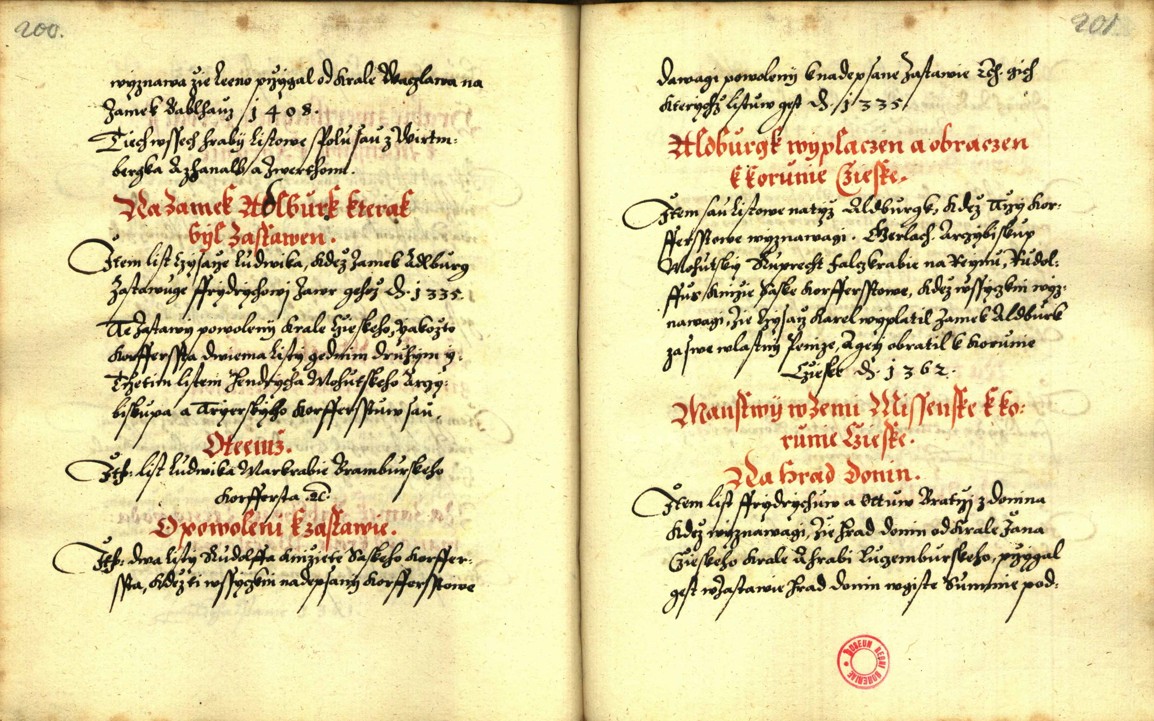 200.
wyznawa zie leeno przygal od krale Waczlawa na
Zamek Bablhauz 1408.
Tiech wssech hraby listowe spolu sau z Wirtm:
bergka
Na zamek Aldburk kterak
byl zastawen.
Item list Czysarze Ludwika, kdez zamek Aldburg
Zastawuge ffrydrychowi 1335
Te zastawy powoleny krale Czieskeho, yakozto
korffersta dwiema listy gednim druhym y:
Trzetim listem Hendrycha Mohutskeho Arzy:
biskupa a Tryerskyho korfferstuw sau.
O temz.
Ith: list Ludwika Markrabie Bramburskeho
korffersta
O powoleni k zastawie.
Ith: dwa listy Rudolffa knizete Saskeho korffer:
sta, kdez ti wssyczkni nadepsany korfferstowe
201
dawagi powoleny k nadepsane zastawie
kterychz listuw gest d. 1335
Aldburgk wyplaczen a obraczen
k korunie Czieske.
Item sau listowe na tyz Aldburgk, kdez Trzy kor:
fferstowe wyznawagi. Gerlach. Arzybiskup
Mohutsky Ruprecht falczkrabie na Reynu, Rudol:
ffus knize Saske korfferstowe, kdez wssyczkni wyz:
nawagi, zie Czysarz Karel wyplatil zamek Aldburk
za swe wlastny penize, a gey obratil k korunie
Czieske d. 1362.
Manstwij w Zemi Missenske k ko:
runie Czieske.
Na hrad Donin.
Item list ffrydrychuw a Ottuw Bratrzy z donina
kdez wyznawagi, zie hrad donin od krale Jana
Czieskeho krale a hrabi Luczemburskeho, przygal
gest w zastawie hrad donin w giste Summie pod:
MUSEUM REGNI BOHEMIAE